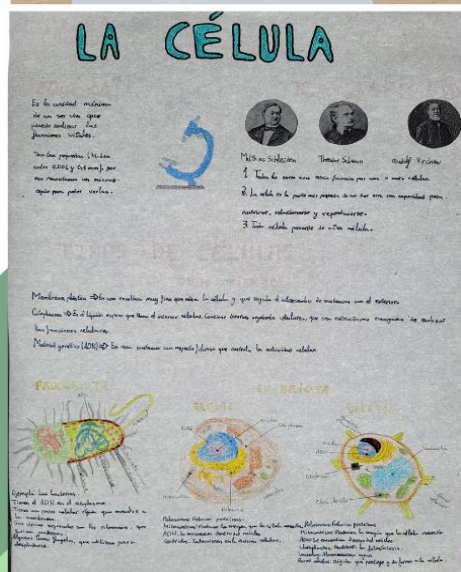 LA CÉLULA
Es la unidad mínima
de un ser vivo que
puede realizar las
funciones vitales.
Son tan pequeñas (
que necesitamos un micros-
copio para poder verlas.
Mathias Schleiden Theodor Schwann Rudolf Virchow
1. Todos los seres vivos están formados por una o más células.
2. La célula es la parte más pequeña de un ser vivo con capacidad para
nutrirse, relacionarse y reproducirse.
3. Toda célula procede de otra célula.
Membrana plástica => Es una envoltura muy fina que rodea la célula y que regula el intercambio de sustancias con el exterior.
Citoplasma => Es el líquido que llena el interior celular. Contiene diversos orgánulos celulares, que son estructuras encargadas de realizar
las funciones celulares.
Material genético (ADN) => Es una sustancia que controla la actividad celular.
PROCARIOTA EUCARIOTA
ANIMAL VEGETAL
Ejemplo: Las bacterias.
Tienen el ADN en el citoplasma.
Tienen una pared celular rígida que envuelve a
la membrana.
Los únicos orgánulos son los ribosomas, que
Algunas tienen flagelos, que utilizan para
desplazarse.
Ribosomas: Fabrican proteínas.
Mitocondrias: Producen la energía que la célula necesita.
ADN: Se encuentra dentro del núcleo.
Centriolos: Intervienen en la división celular.
Ribosomas: Fabrican proteínas
Mitocondrias: Producen la energía que la célula necesita
ADN: Se encuentra dentro del núcleo
Cloroplastos: Realizan la fotosíntesis.
Vacuolas: Almacenan agua
Pared celular: rígida que protege y da forma a la célula.